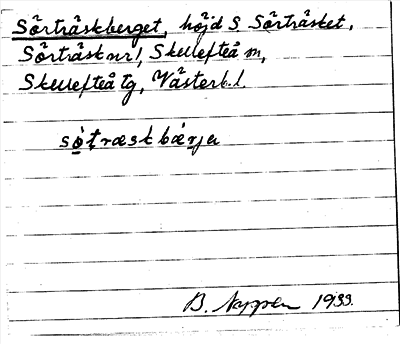 Sörträskberget, höjd S Sörträsket,
Sörträsk nr 1, Skellefteå m,
Skellefteå tg, Västerb. l.
sötræskbärja
B. 1933.